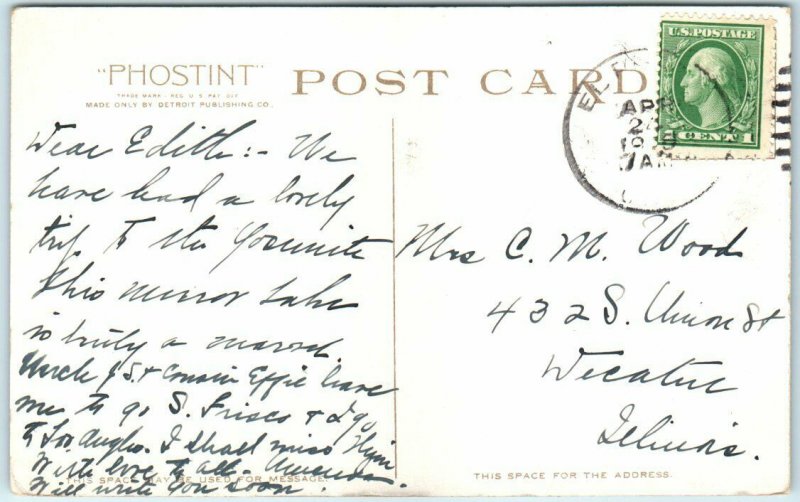 "PHOSTINT"
TRADE MARK - REG. U.S. PAT. OFF.
MADE ONLY BY DETROIT PUBLISHING CO.
POST CARD
U.S. POSTAGE
CENT 1
APR
24
7 AM
Dear Edith:- We
have had a lovely
trip to the Yosemite
This mirror Lake
is truly a
Uncle J S. & Cousin Effie leave
me to go S. Frisco & I go
to Los Angles. I shall miss them
With love to all - Amanda.
Will write you soon.
THIS SPACE MAY BE USED FOR MESSAGE.
Mrs C. M. Wood
432 S. Union St
Decatur
Illinois.
THIS SPACE FOR THE ADDRESS.